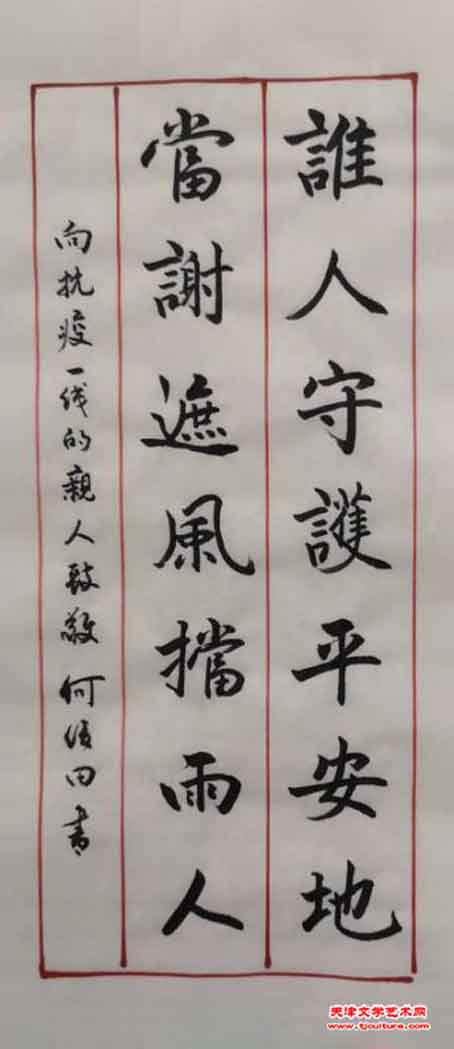 誰人守護平安地
當謝遮風擋雨人
向抗疫一线的親人致敬 何 田書
天津文学艺术网
www.tjculture.com